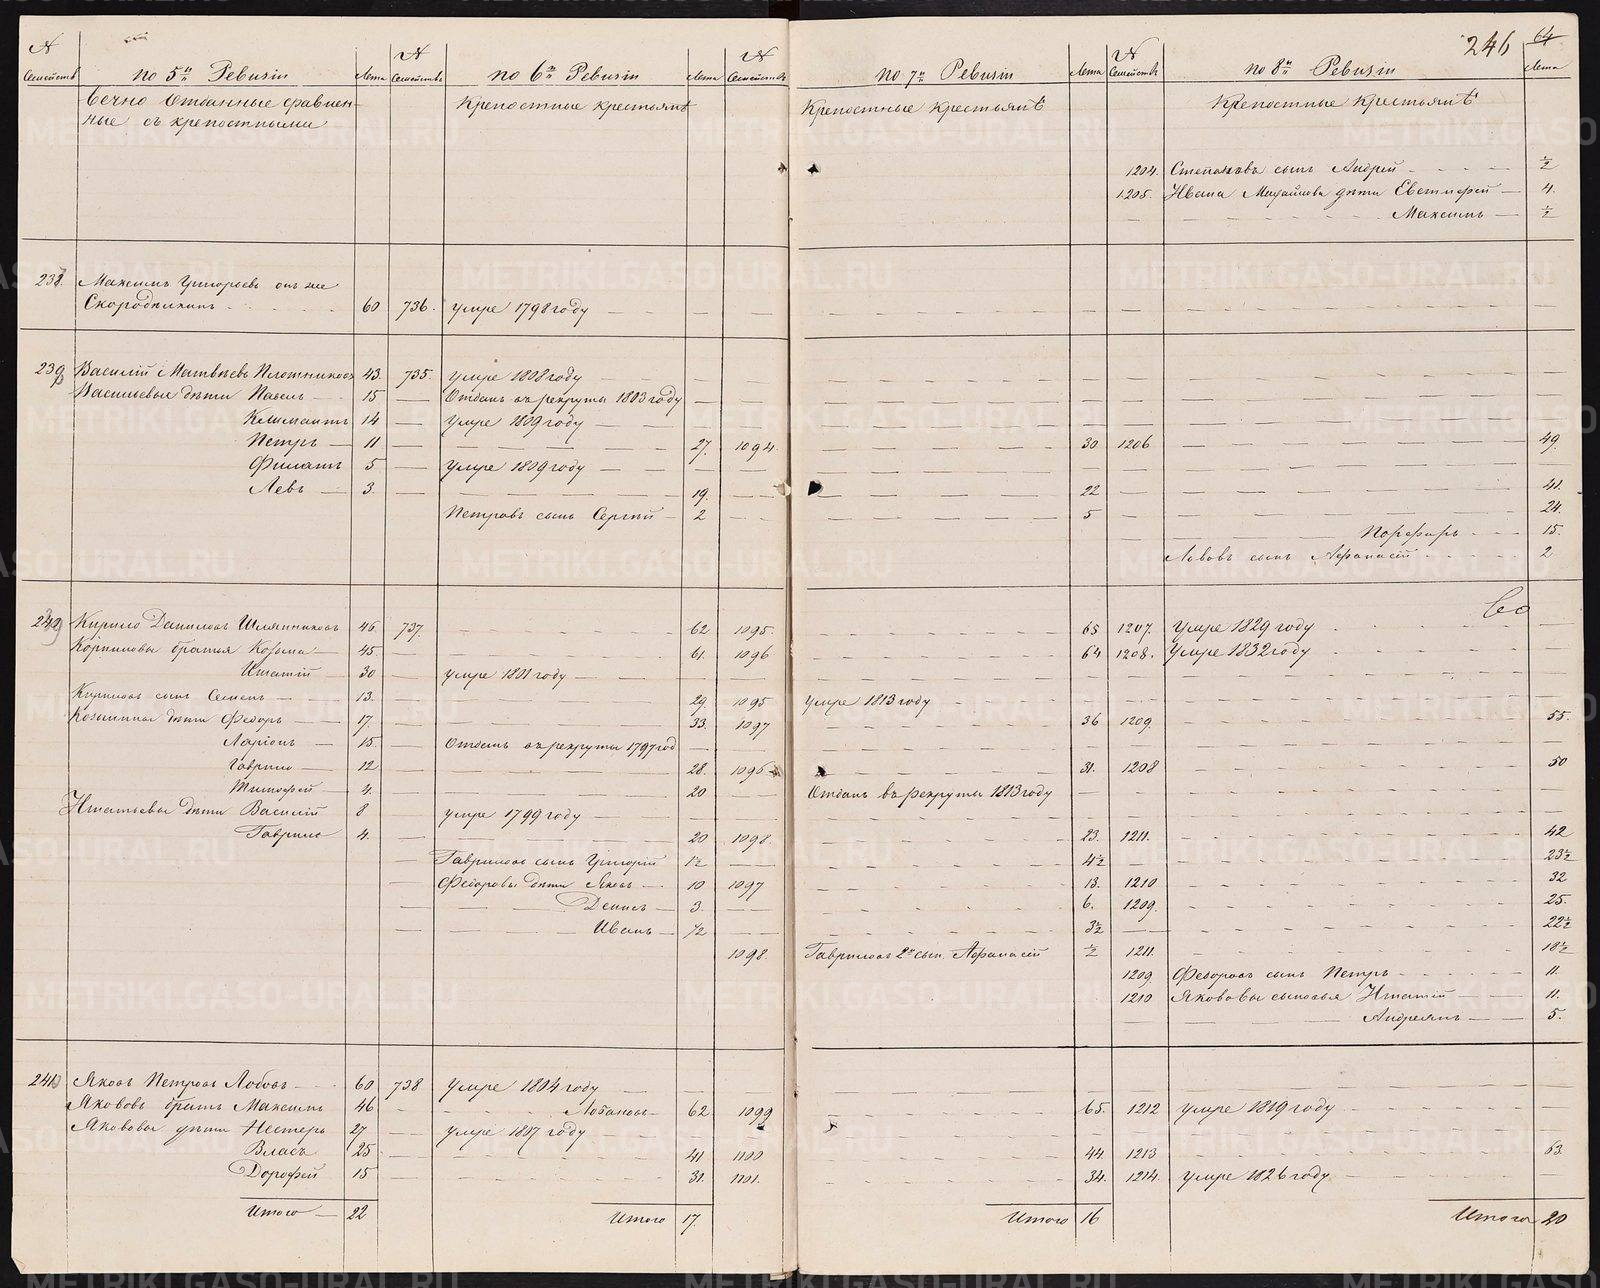 246 64
№ Семействъ по 5й Ревизіи Лета № Семействъ по 6й Ревизіи Лета № Семействъ по 7й Ревизіи Лета № Семействъ по 8й Ревизіи Лета
Вечно Отданные сравнен- Крепостные крестьянѣ Крепостные крестьянѣ Крепостные крестьянѣ
ные съ крепостными
1204. Степановъ сынъ Андрей ½
1205. Ивана дѣти 4.
Максимъ ½
238. Максимъ Григорьевъ онъ же
Скородникинъ 60 736. умре 1798 году
239 Василій Матвѣевъ Плотниковъ 43. 735. умре 1808 году
Васильевы дѣти Павелъ 15 Отданъ въ рекруты 1803 году
14 умре 1809 году
Петръ 11 27. 1094. 30 1206 49.
Филатъ 5 умре 1809 году
Левъ 3. 19. 22 41.
Петровъ сынъ Сергѣй 2 5 24.
Порфиръ 15.
Львовъ сынъ Афанасій 2
240 Кирило Даниловъ 46. 737. 62 1095. 65 1207. Умре 1829 году
братья Козьма 45 61. 1096 64 1208. Умре 1832 году
Игнатій 30 умре 1801 году
Кириловъ сынъ Семенъ 13. 29. 1095 умре 1813 году
Козьмины дѣти Федоръ 17. 33. 1097 36 1209. 55.
Ларіонъ 15. Отданъ въ рекруты 1797 год
Гаврило 12 28. 1096 31. 1208 50
Тимофей 4. 20 Отданъ въ рекруты 1813 году
Игнатьевы дѣти Василій 8 умре 1799 году
Гаврило 4. 20 1098. 23. 1211. 42
Гавриловъ сынъ Григорій 1½ 4½ 23½
Федоровы дѣти Яковъ 10 1097 13. 1210 32
Денисъ 3. 6. 1209. 25.
Иванъ ½ 3½ 22½
1098. Гавриловъ 2й сын. Афанасій ½ 1211. 18½
1209. Федоровъ сынъ Петръ 11.
1210 Яковлевы сыновья Игнатій 11.
Андреянъ 5.
241 Яковъ Петровъ Лобовъ 60 738 умре 1804 году
Яковлевъ братъ Максимъ 46 Лобановъ 62. 1099 65. 1212 умре 1819 году
Яковлевы дѣти Нестеръ 27 умре 1807 году
Власъ 25 41 1100 44. 1213 63.
Дорофей 15 31. 1101. 34. 1214. умре 1826 году
Итого 22 Итого 17. Итого 16 Итого 20
METRIKI.GASO-URAL.RU